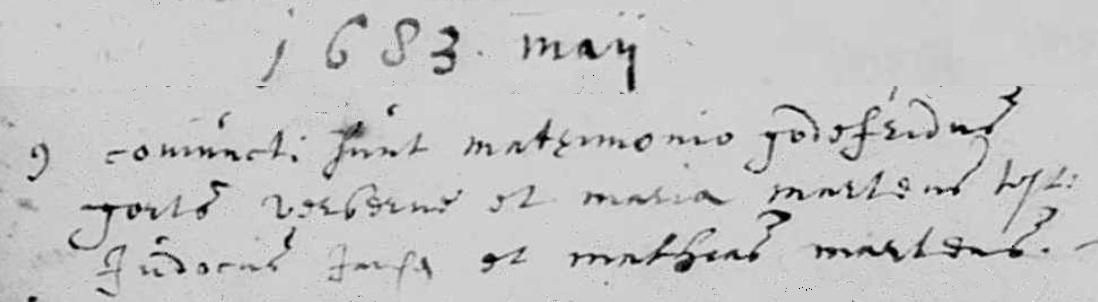 1683. maij
9 coniuncti sunt matrimonio godefridus
gorts verberne et maria martens test:
Judocus et mathias martens.